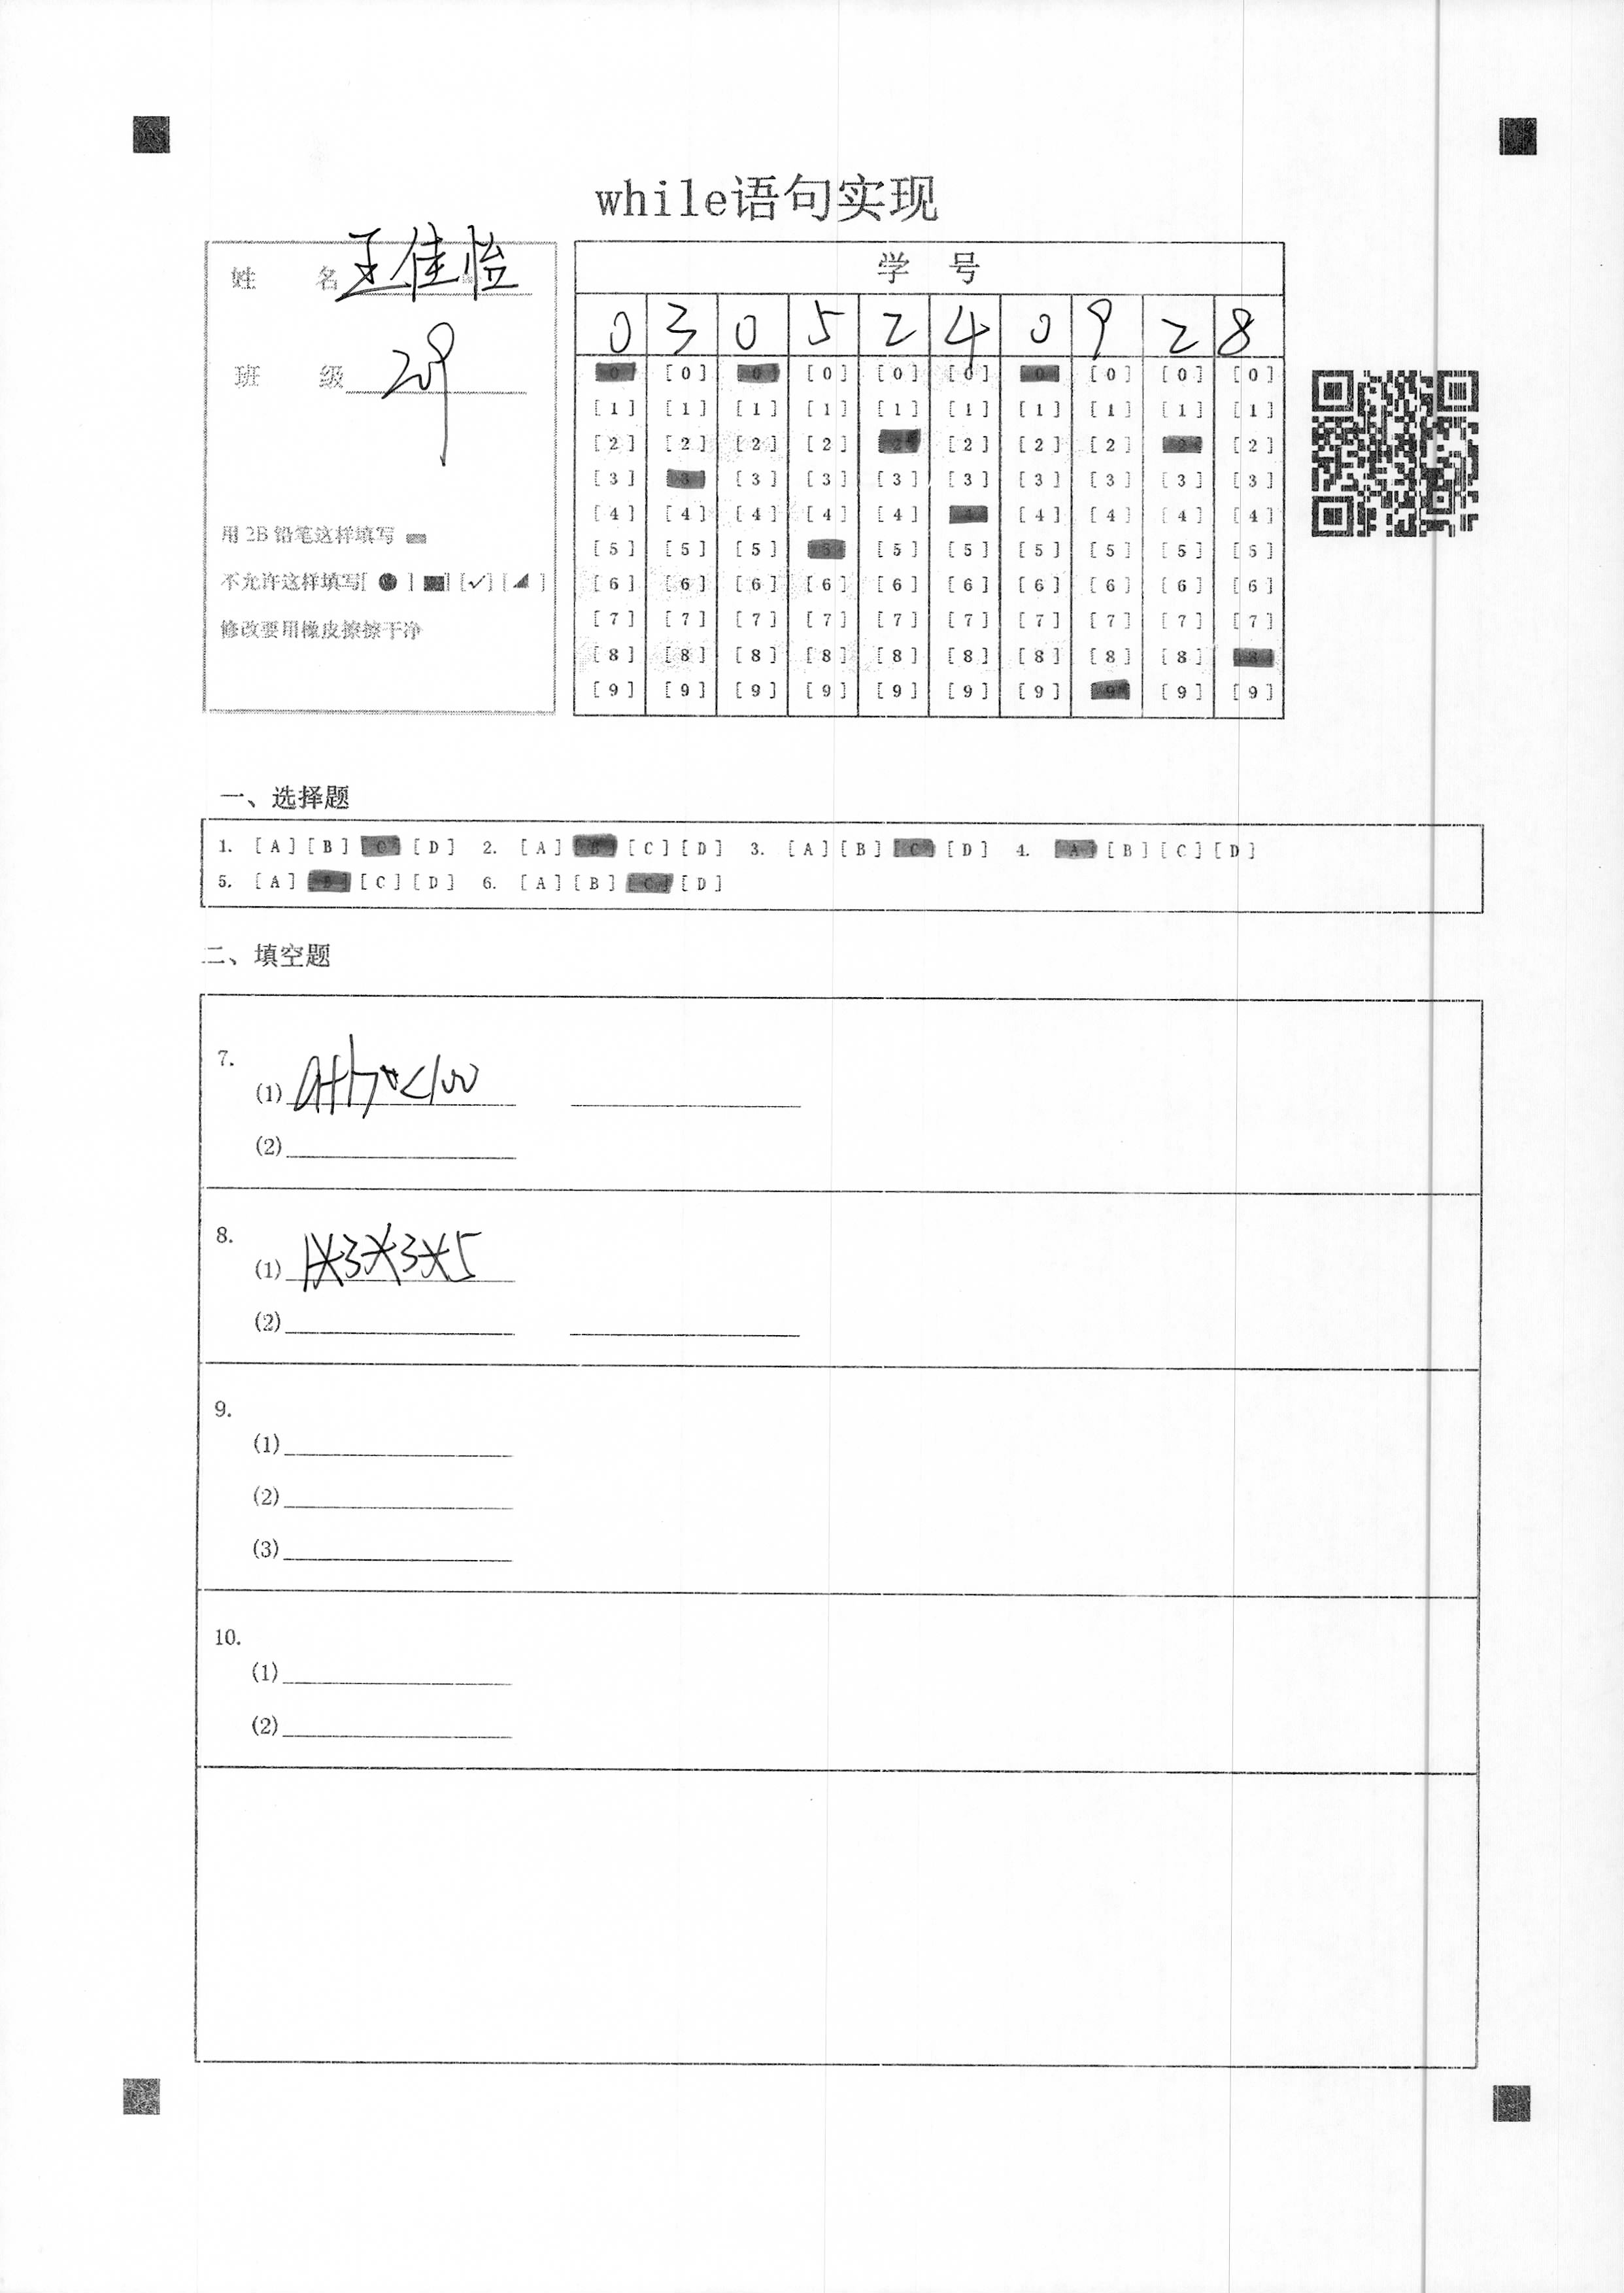 while语句实现
姓 名 王佳怡
班 级 209
用 2B 铅笔这样填写
不允许这样填写[ ● ] [■] [✓] [◢ ]
修改要用橡皮擦擦干净
学 号
0 3 0 5 2 4 0 9 2 8
[0] [0] [0] [0] [0] [0] [0] [0] [0] [0]
[1] [1] [1] [1] [1] [1] [1] [1] [1] [1]
[2] [2] [2] [2] [2] [2] [2] [2] [2] [2]
[3] [3] [3] [3] [3] [3] [3] [3] [3] [3]
[4] [4] [4] [4] [4] [4] [4] [4] [4] [4]
[5] [5] [5] [5] [5] [5] [5] [5] [5] [5]
[6] [6] [6] [6] [6] [6] [6] [6] [6] [6]
[7] [7] [7] [7] [7] [7] [7] [7] [7] [7]
[8] [8] [8] [8] [8] [8] [8] [8] [8] [8]
[9] [9] [9] [9] [9] [9] [9] [9] [9] [9]
一、选择题
1. [A] [B] [C] [D] 2. [A] [B] [C] [D] 3. [A] [B] [C] [D] 4. [A] [B] [C] [D]
5. [A] [B] [C] [D] 6. [A] [B] [C] [D]
二、填空题
7.
(1) <100
(2)
8.
(1) 1*3*3*5
(2)
9.
(1)
(2)
(3)
10.
(1)
(2)